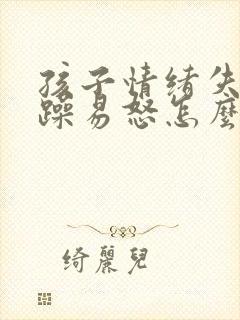 孩子情绪失
躁易怒怎麼
绮麗兒